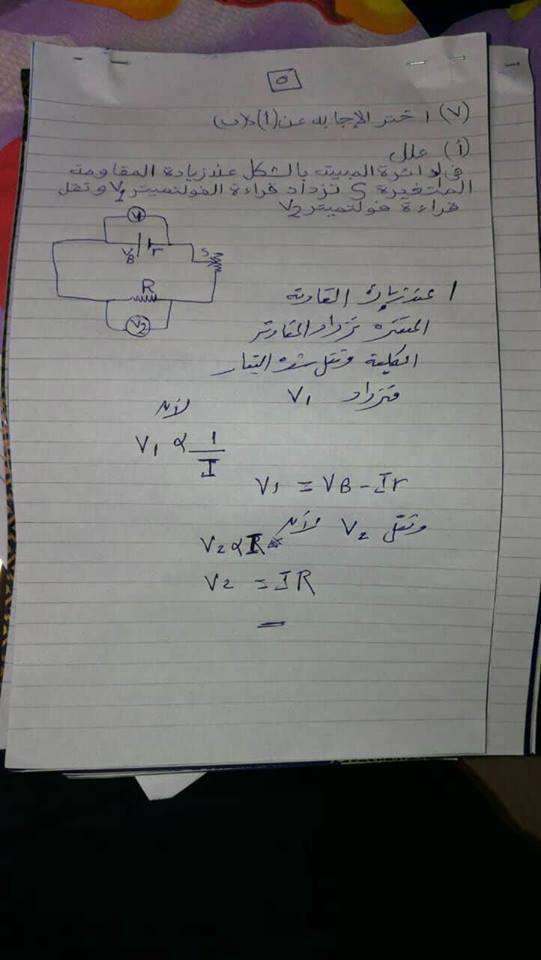 ٥
(٧) اختر الإجابه عن (أ) أو (ب)
(أ) علل
في الدائرة المبينه بالشكل عند زيادة المقاومة
المتغيرة S تزداد قراءة الفولتميتر V1 وتقل
قراءة فولتميتر V2
V1
VB r S
R
V2
عند زيادة المقاومة
المتغيرة تزداد المقاومة
الكلية وتقل شدة التيار
فتزداد V1
لأنه
V1 α 1/I
V1 = VB - Ir
وتقل V2 لأنه
V2 α I
V2 = IR